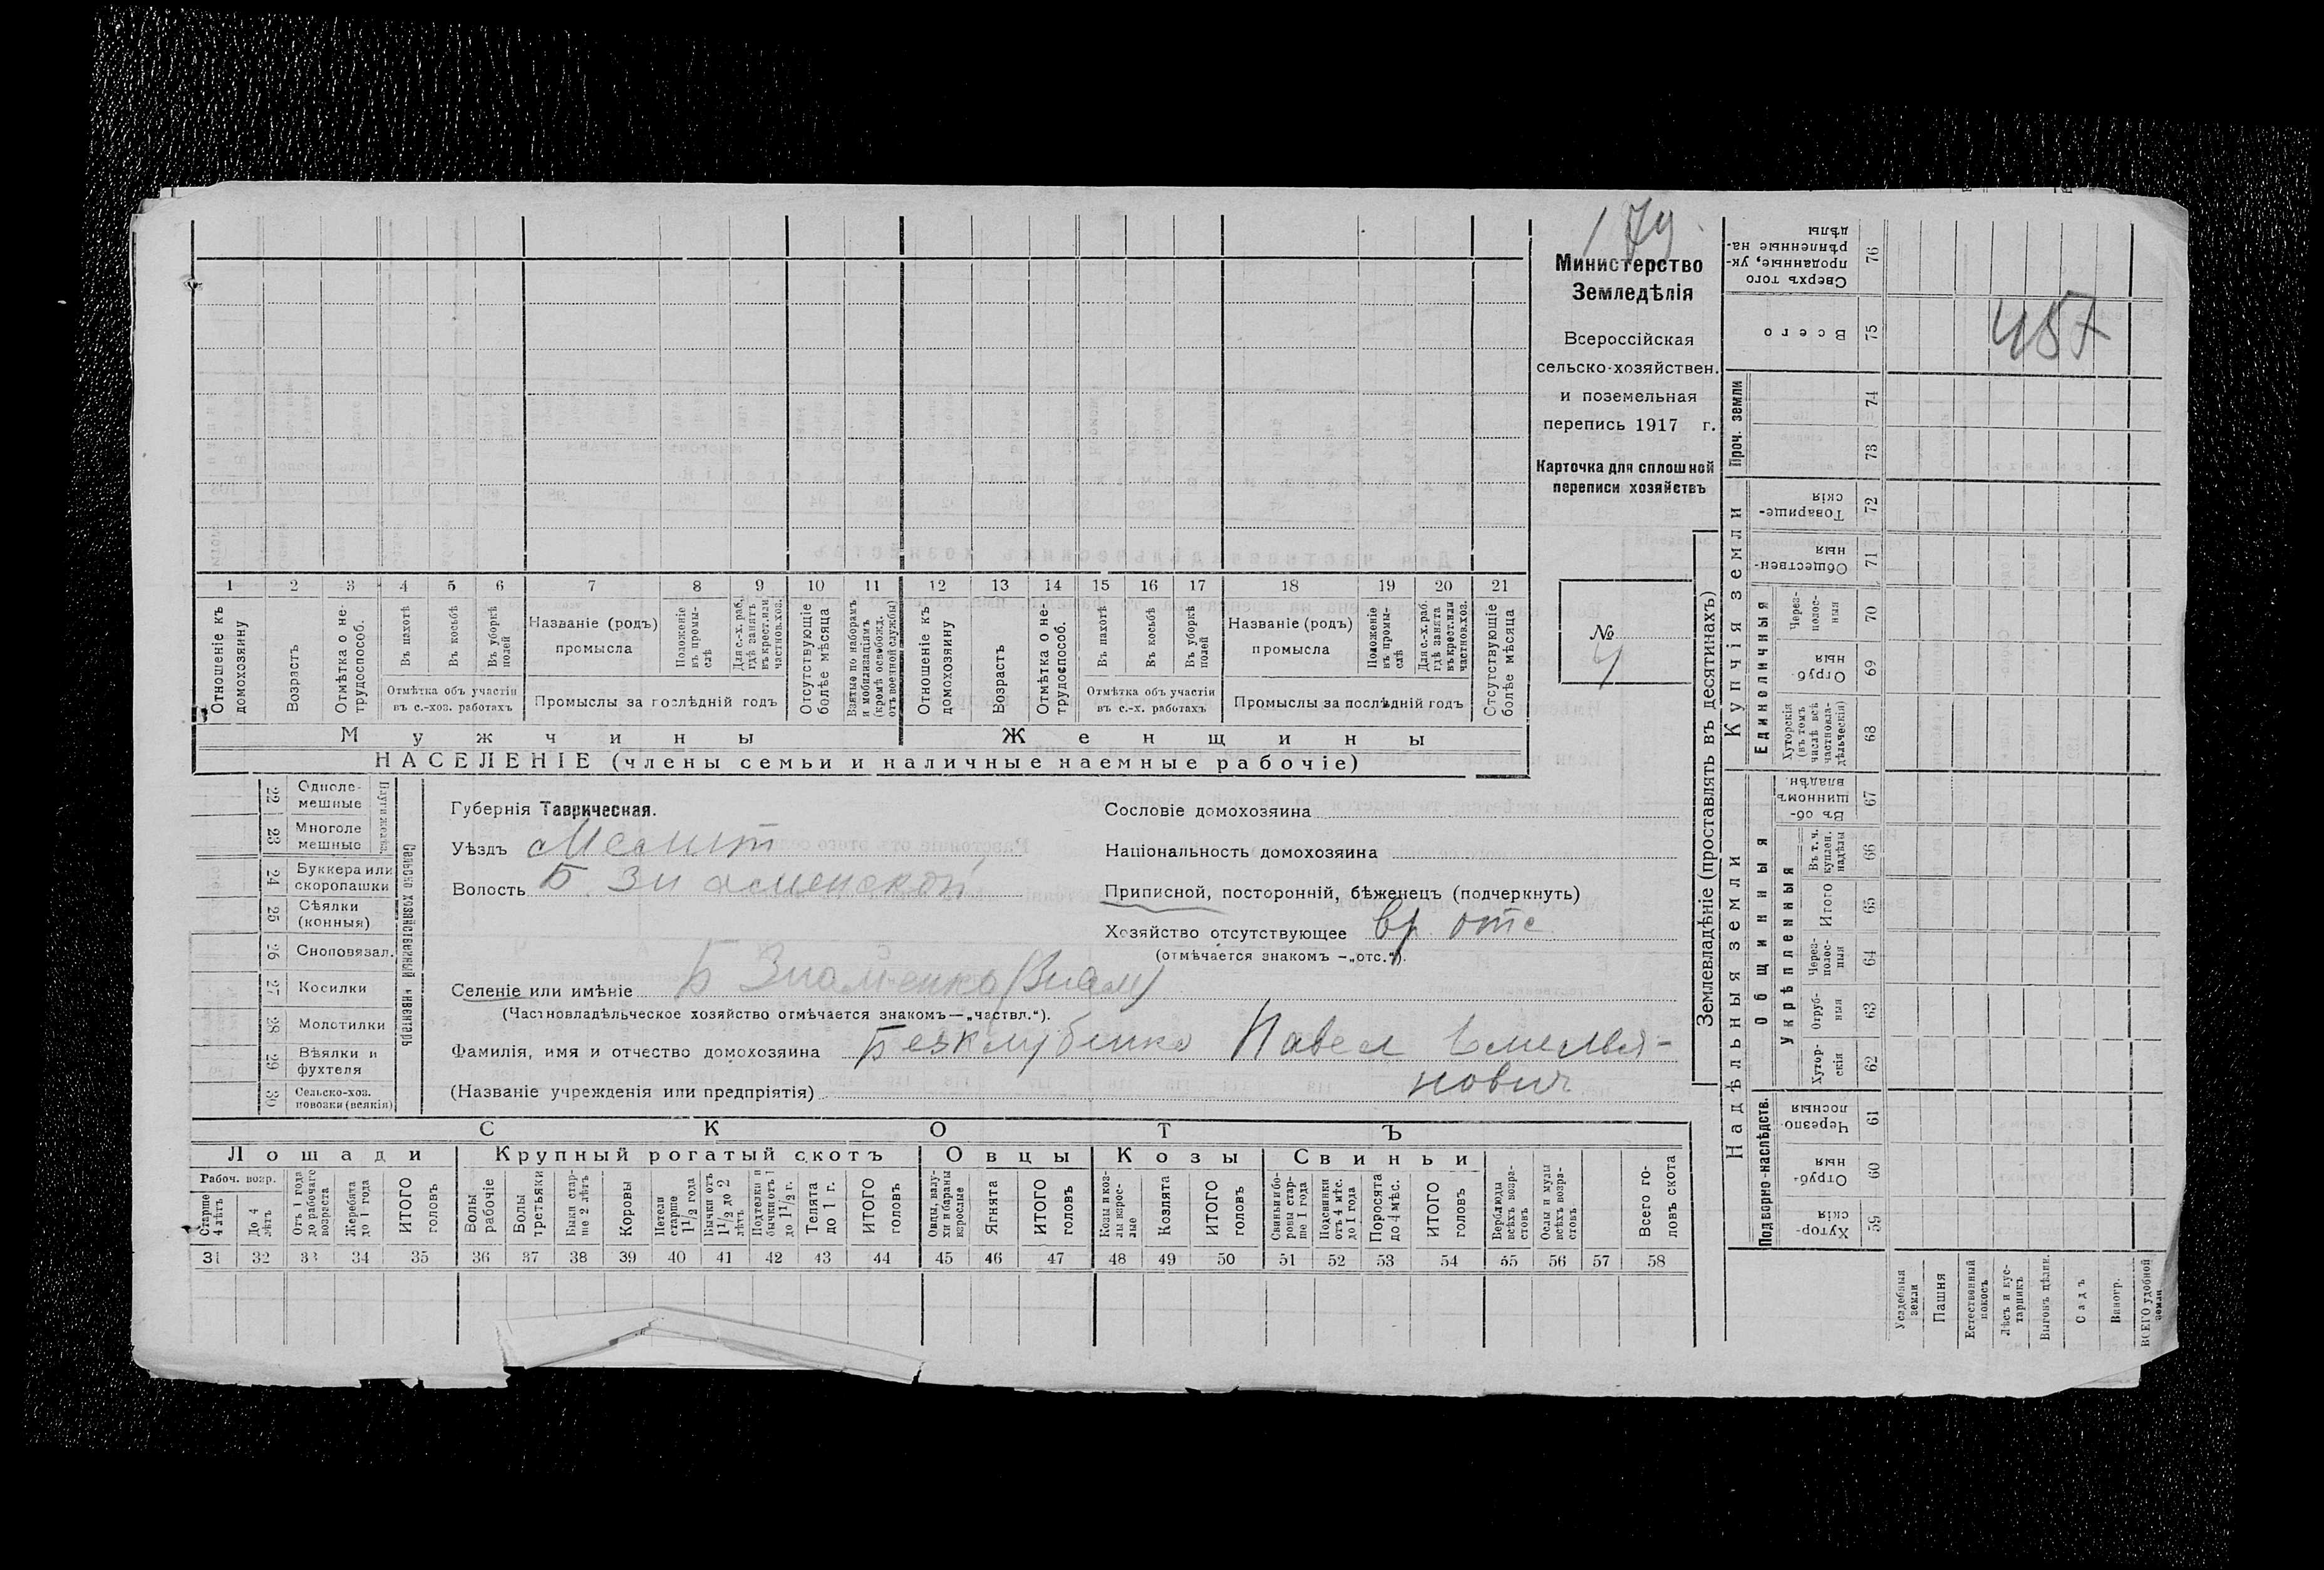 179.
Министерство
Земледѣлія
Всероссійская
сельско-хозяйствен.
и поземельная
перепись 1917 г.
Карточка для сплошной
переписи хозяйствъ
№
4
457
1 2 3 4 5 6 7 8 9 10 11 12 13 14 15 16 17 18 19 20 21
Отношеніе къ домохозяину
Возрастъ
Отмѣтка о не-трудоспособ.
Въ пахотѣ
Въ косьбѣ
Въ уборкѣ полей
Отмѣтка объ участіи
въ с.-хоз. работахъ
Названіе (родъ)
промысла
Положеніе въ промы-слѣ
Для с.-х. раб. гдѣ занятъ въ крест. или частнов. хоз.
Промыслы за послѣдній годъ
Отсутствующіе болѣе мѣсяца
Взятые по наборамъ и мобилизаціямъ (кромѣ освобожд. отъ военной службы)
Отношеніе къ домохозяину
Возрастъ
Отмѣтка о не-трудоспособ.
Въ пахотѣ
Въ косьбѣ
Въ уборкѣ полей
Отмѣтка объ участіи
въ с.-х. работахъ
Названіе (родъ)
промысла
Положеніе въ промы-слѣ
Для с.-х. раб. гдѣ занята въ крест. или частнов. хоз.
Промыслы за послѣдній годъ
Отсутствующіе болѣе мѣсяца
Мужчины
Женщины
НАСЕЛЕНІЕ (члены семьи и наличные наемные рабочіе)
22 Одноле-мешные
23 Многоле мешные
24 Буккера или скоропашки
25 Сѣялки (конныя)
26 Сноповязал.
27 Косилки
28 Молотилки
29 Вѣялки и фухтеля
30 Сельско-хоз. повозки (всякія)
Сельско хозяйственный инвентарь
Губернія Таврическая.
Уѣздъ Мелит
Волость Б. Знаменской
Сословіе домохозяина
Національность домохозяина
Приписной, посторонній, бѣженецъ (подчеркнуть)
Хозяйство отсутствующее вр. отс
(отмѣчается знакомъ —„отс.“).
Селеніе или имѣніе Б Знаменка (Знам)
(Частновладѣльческое хозяйство отмѣчается знакомъ—„частвл.“).
Фамилія, имя и отчество домохозяина Безклубенко Павел Емелья-
нович
(Названіе учрежденія или предпріятія)
СКОТЪ
Лошади
Крупный рогатый скотъ
Овцы
Козы
Свиньи
Рабоч. возр.
Старше 4 лѣтъ
До 4 лѣтъ
Отъ 1 года до рабочаго возраста
Жеребята до 1 года
ИТОГО головъ
Волы рабочіе
Волы третьяки
Быки стар-ше 2 лѣтъ
Коровы
Нетели старше 1 1/2 года
Бычки отъ 1 1/2 до 2 лѣтъ
Подтелки и бычки отъ 1 до 1 1/2 г.
Телята до 1 г.
ИТОГО головъ
Овцы, валу-хи и бараны взрослые
Ягнята
ИТОГО головъ
Козы и коз-лы взрос-лые
Козлята
ИТОГО головъ
Свиньи и бо-ровы стар-ше 1 года
Подсвинки отъ 4 мѣс. до 1 года
Поросята до 4 мѣс.
ИТОГО головъ
Верблюды всѣхъ возра-стовъ
Ослы и мулы всѣхъ возра-стовъ
Всего го-ловъ скота
31 32 33 34 35 36 37 38 39 40 41 42 43 44 45 46 47 48 49 50 51 52 53 54 55 56 57 58
Землевладѣніе (проставлять въ десятинахъ)
Надѣльныя земли
Купчія земли
Проч. земли
Подворно-наслѣдств.
Общинныя
Укрѣпленныя
Единоличныя
Сверхъ того проданные, ук-рѣпленные на-дѣлы 76
Всего 75
74
73
Товарище-скія 72
Обществен-ныя 71
Через-полос-ныя 70
Отруб-ныя 69
Хуторскія (въ томъ числѣ всѣ частновла-дѣльческія) 68
Въ об-щинномъ владѣн. 67
Въ т. ч. куплен. надѣлы 66
Итого 65
Через-полос-ныя 64
Отруб-ныя 63
Хутор-скія 62
Черезпо-лосныя 61
Отруб-ныя 60
Хутор-скія 59
Усадебныя земли
Пашня
Естественный покосъ
Лѣсъ и кус-тарникъ
Выгонъ цѣлин.
Садъ
Виногр.
ВСЕГО удобной земли